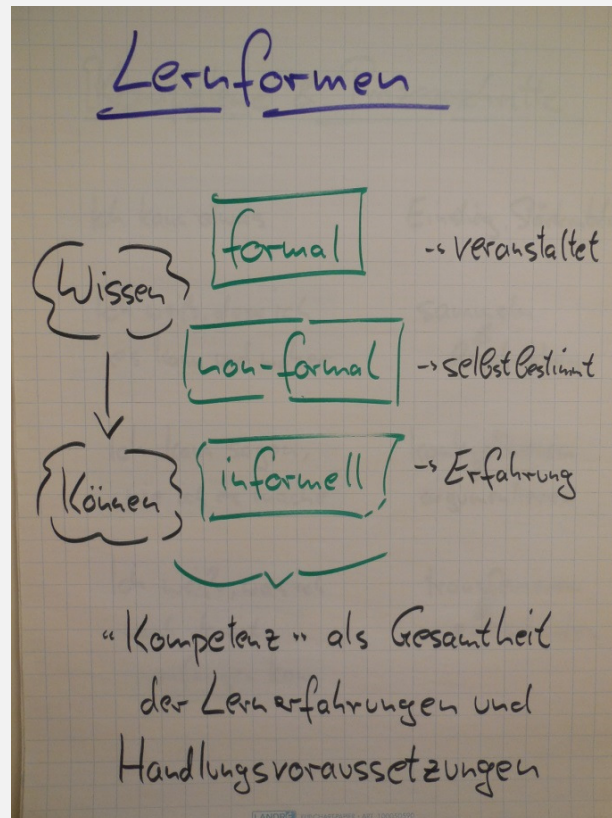 Lernformen
formal
-> veranstaltet
Wissen
non-formal
-> selbstbestimmt
Können
informell
-> Erfahrung
"Kompetenz" als Gesamtheit
der Lernerfahrungen und
Handlungsvoraussetzungen